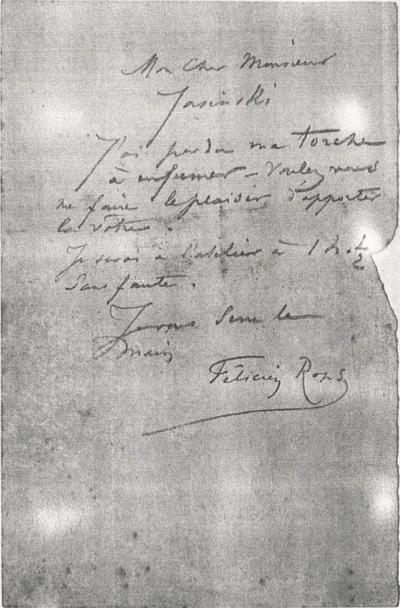 Mon Cher Monsieur
Jasinski
J'ai perdu ma torche
à enfumer – Voulez vous
me faire le plaisir d'apporter
la vôtre.
Je serai à l'atelier à 1 h. 1/2
Sans faute.
Je vous serre la
main
Félicien Rops